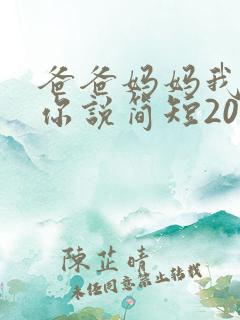 爸爸妈妈我
你說简短20
陳芷晴
未经同意禁止转载